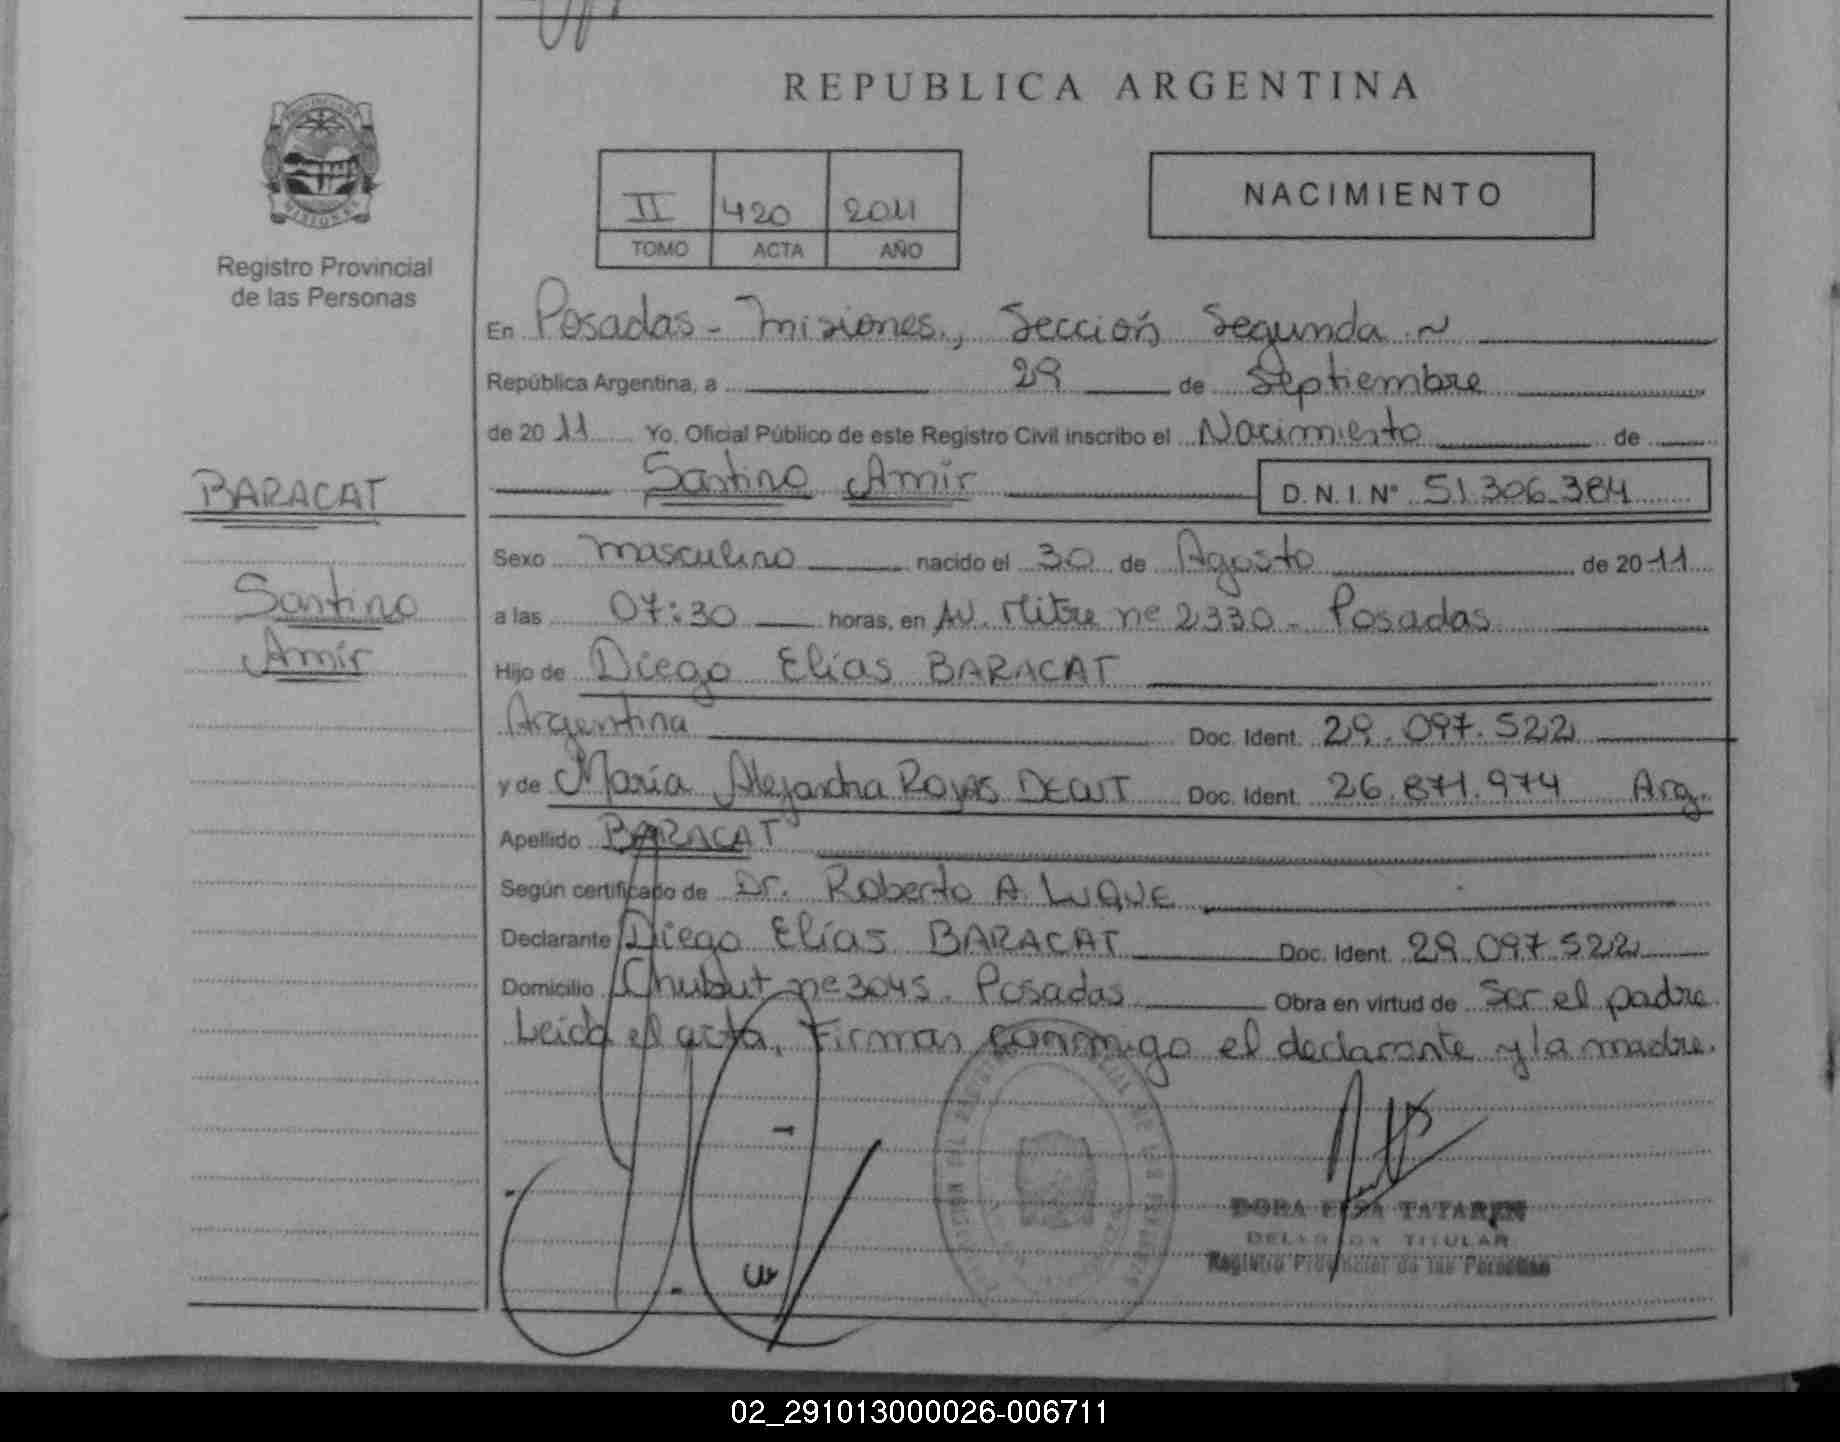 REPUBLICA ARGENTINA
NACIMIENTO
II 420 2011
TOMO ACTA AÑO
Registro Provincial
de las Personas
BARACAT
Santino
Amir
En Posadas - Misiones, Sección Segunda ~
República Argentina, a 29 de Septiembre
de 2011 Yo, Oficial Público de este Registro Civil inscribo el Nacimiento de
Santino Amir D.N.I. Nº 51.306.384
Sexo masculino nacido el 30 de Agosto de 2011
a las 07:30 horas, en Av. Mitre nº 2330 - Posadas
Hijo de Diego Elías BARACAT
Argentina Doc. Ident. 29.097.522
y de María Alejandra Doc. Ident. 26.871.974 Arg.
Apellido BARACAT
Según certificado de Dr. Roberto A. LUQUE
Declarante Diego Elías BARACAT Doc. Ident. 29.097.522
Domicilio Chubut nº 3045. Posadas Obra en virtud de Ser el padre
Leída el acta, Firman conmigo el declarante y la madre.
DORA TATAREN
TITULAR
Registro Provincial de las Personas
02_291013000026-006711